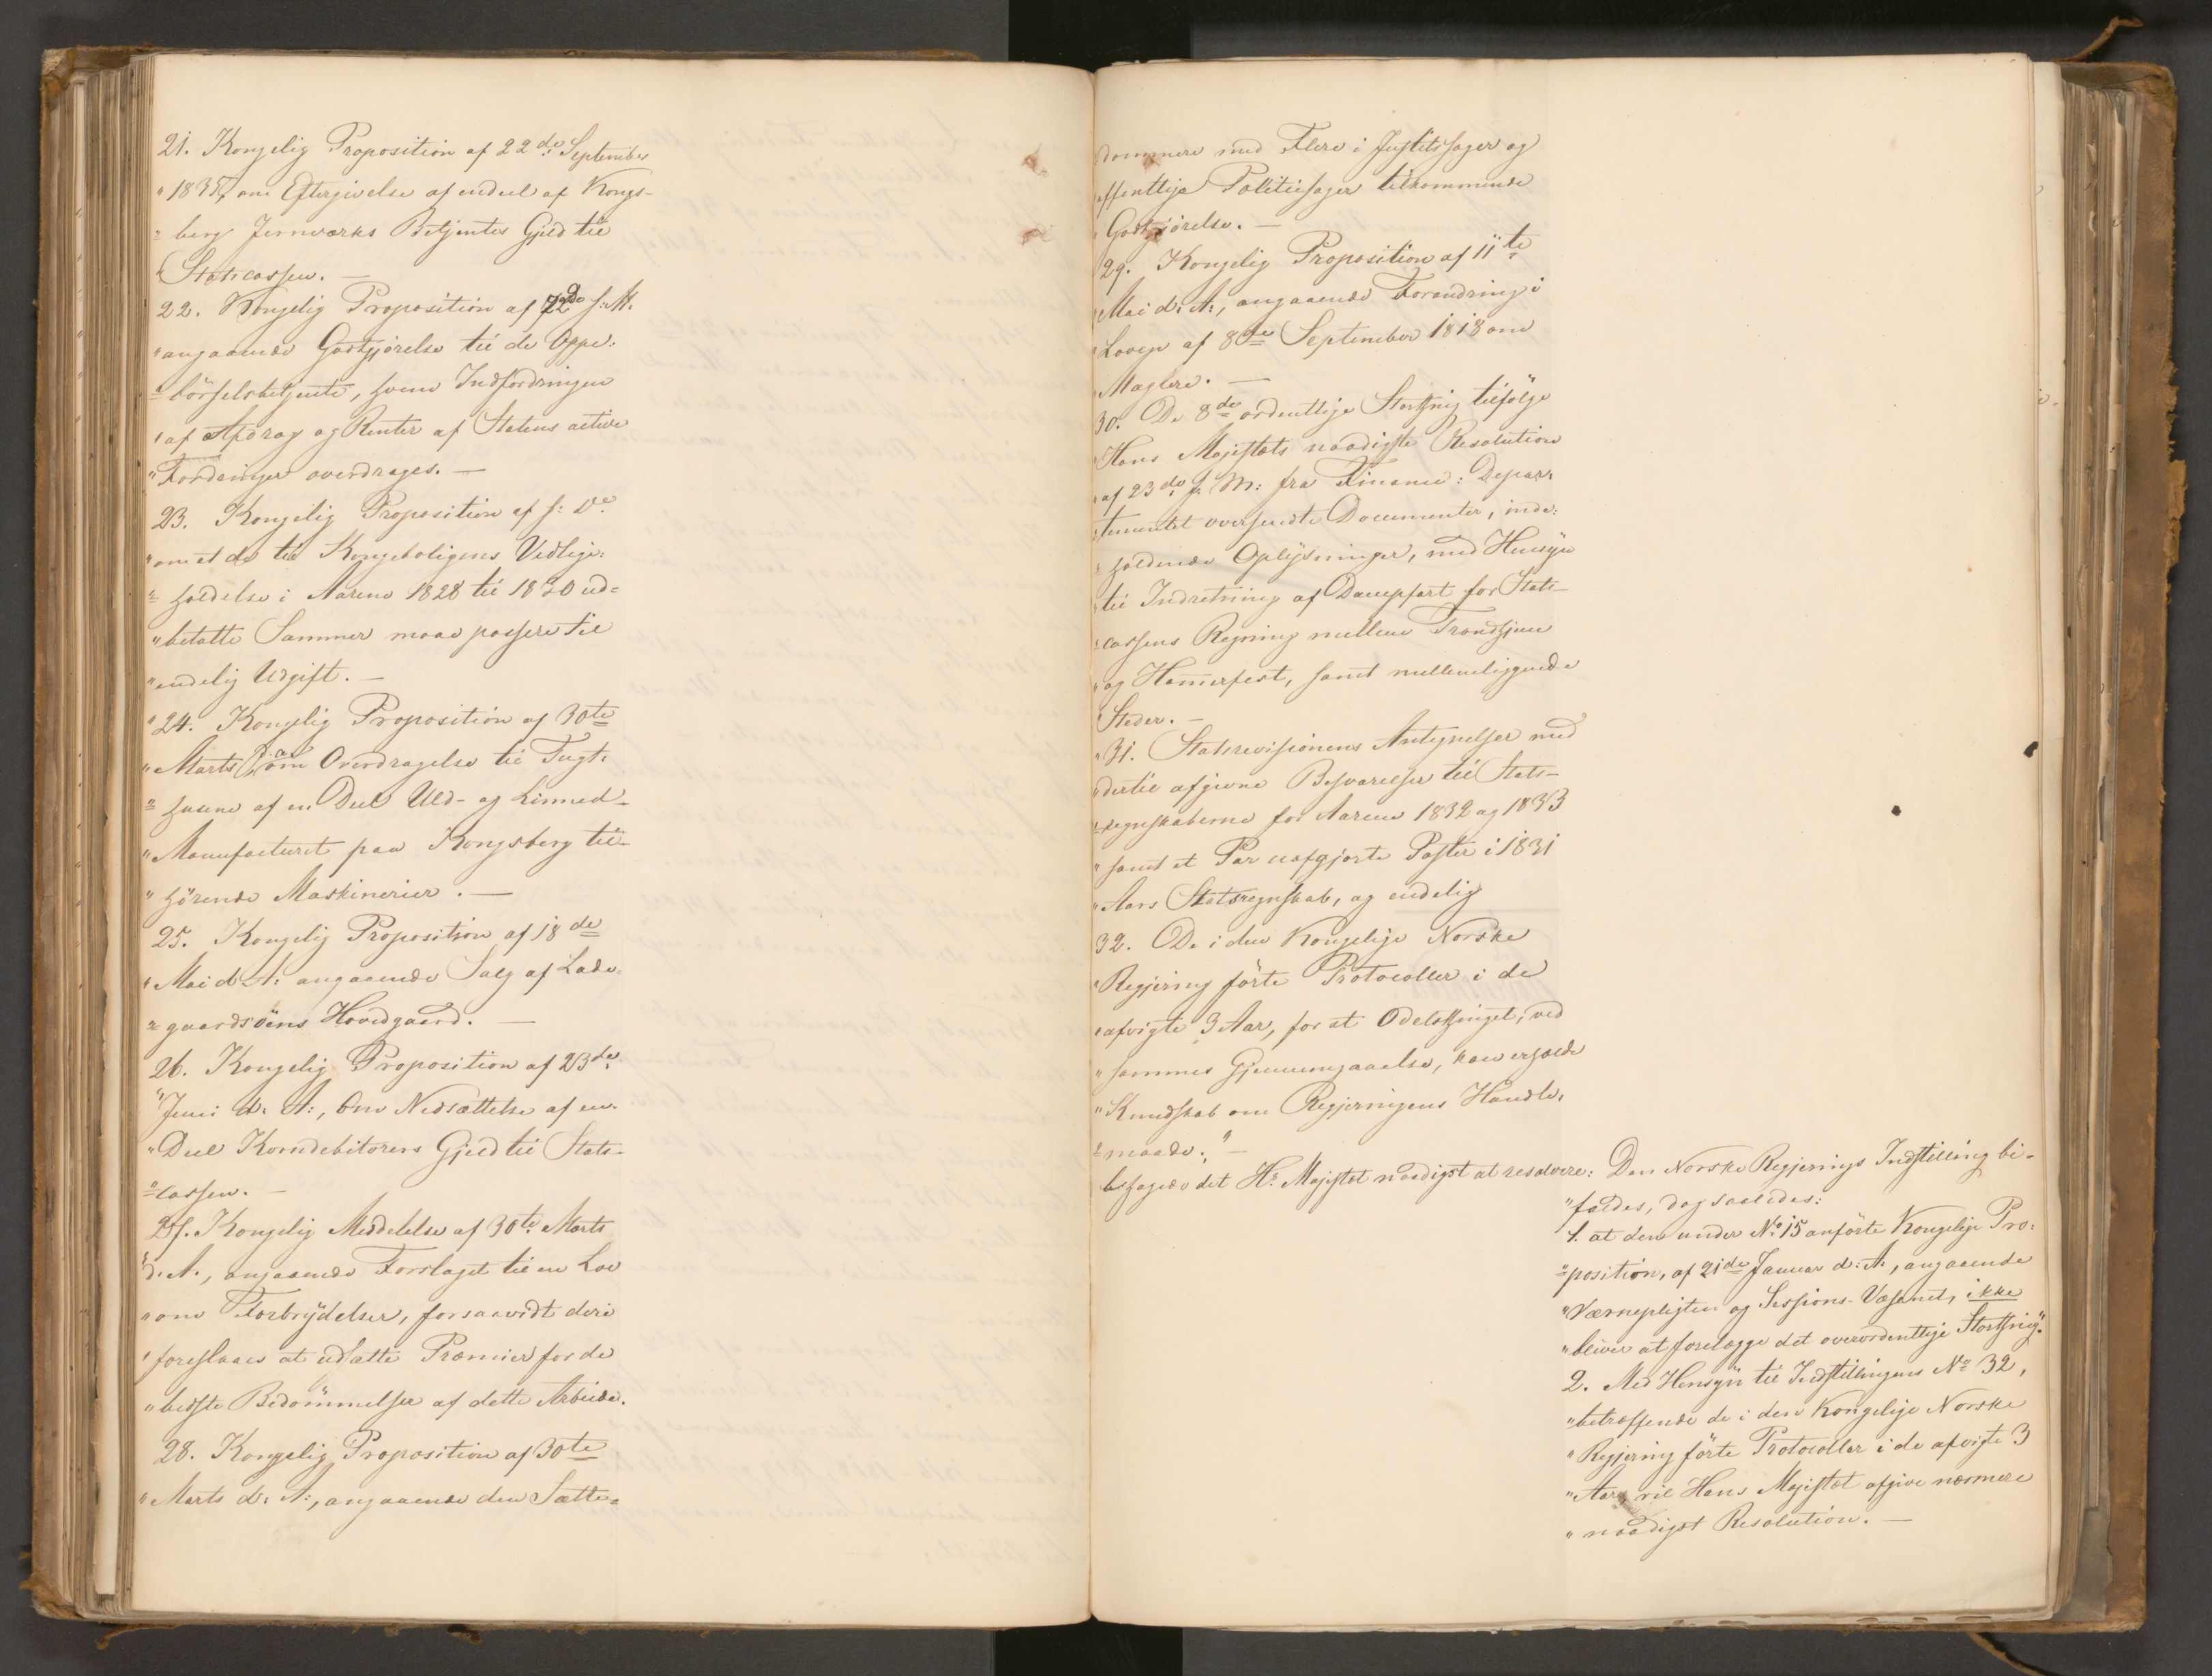 21. Kongelig Proposition af 22de September
"1835, om Eftergivelse af endeel af Kongs-
"berg Jernværks Betjentes Gjeld til
"Statscassen. —
22. Kongelig Proposition af 22de s: M.
"angaaende Godtgjörelse til de Oppe:
"börselsbetjente, hvem Indfordringen
"af Afdrag og Renter af Statens active
"Fordringer overdrages. —
23. Kongelig Proposition af s: D.
"om at de til Kongeboligens Vedlige:
"holdelse i Aarene 1828 til 1830 ud=
"betalte Summer maae passere til
"endelig Udgift. —
"24. Kongelig Proposition af 30te
"Marts d: A: om Overdragelse til Tugt:
"husene af en Deel Uld- og Linned-
"Manufacturet paa Kongsberg til-
"hörende Maskinerier. —
25. Kongelig Proposition af 18de
"Mai d: A: angaaende Salg af Lade-
"gaardsöens Hovedgaard. —
26. Kongelig Proposition af 23de
"Juni d: A:, om Nedsættelse af en
"Deel Korndebitorers Gjeld til Stats-
"cassen. —
27. Kongelig Meddelelse af 30te Marts
"d: A., angaaende Forslaget til en Lov
"om Forbrÿdelser, forsaavidt deri
"foreslaaes at udsætte Præmier for de
"bedste Bedömmelser af dette Arbeide.
28. Kongelig Proposition af 30te
"Marts d: A:, angaaende den Sætte-
dommere med Flere i Justitssager og
offentlige Politiesager tilkommende
Godtgjörelse. —
29. Kongelig Proposition af 11te
"Mai d: A:, angaaende Forandring i
"Loven af 8de September 1818 om
"Mæglere. —
30. De 8de ordentlige Storthing tilfölge
"Hans Majestæts naadigste Resolution
"af 23de f: M: fra Finance: Depar:
"tementet oversendte Documenter, inde:
"holdende Oplÿsninger, med Hensÿn
"til Indretning af Dampfart for Stats-
"cassens Regning mellem Trondhjem
"og Hamerfest, samt mellemliggende
"Steder. —
"31. Statsrevisionens Antegnelser med
"dertil afgivne Besvarelser til Stats-
"regnskaberne for Aarene 1832 og 1833
"samt et Par uafgjorte Poster i 1831
"Aars Statsregnskab, og endelig
32. De i den Kongelige Norske
"Regjering förte Protocoller i de
"afvigte 3 Aar, for at Odelsthinget, ved
"sammes Gjennemgaaelse, kan erholde
"Kundskab om Regjeringens Handle:
"maade." —
behagede det Hs Majestet naadigst at resolvere: Den Norske Regjerings Indstilling bi-
"faldes, dog saaledes:
"1. at den under No 15 anförte Kongelige Pro:
"position, af 21de Januar d: A:, angaaende
"Værnepligten og Sessions-Væsenet, ikke
"bliver at forelægge det overordentlige Storthing".
2. Med Hensÿn til Indstillingens No 32,
"betræffende de i den Kongelige Norske
"Regjering förte Protocoller i de afvigte 3
"Aar, vil Hans Majestæt afgive nærmere
"naadigst Resolution. —